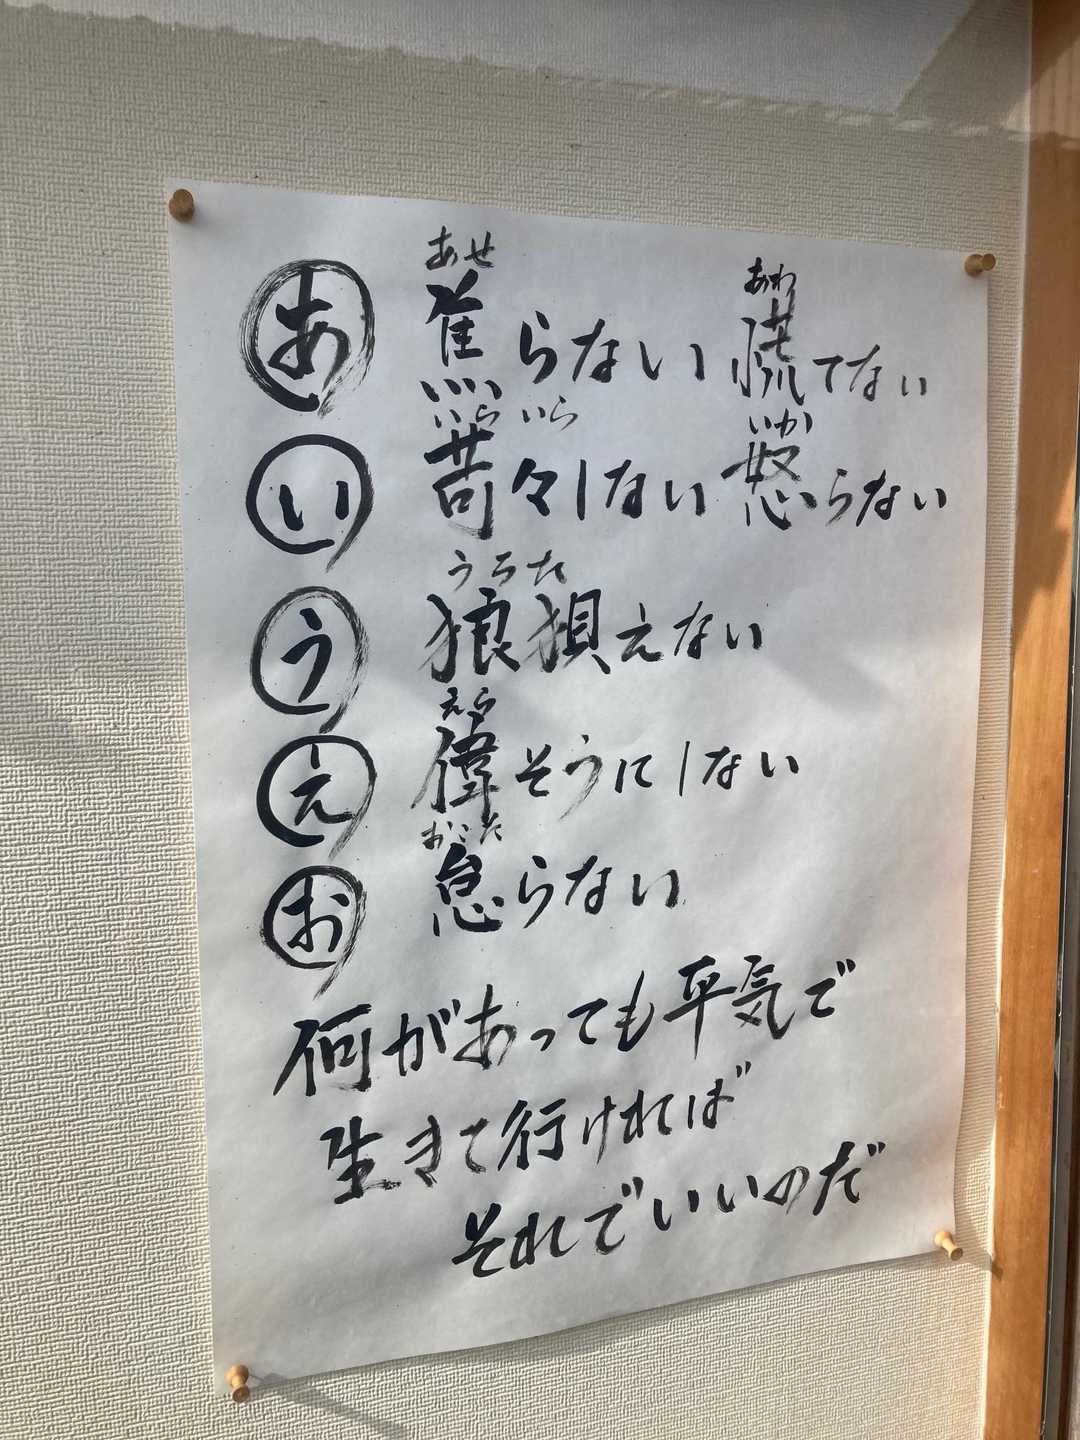 あ 焦らない 慌てない
あせ あわ
い 苛々しない 怒らない
いら いら いか
う 狼狽えない
うろた
え 偉そうにしない
えら
お 怠らない
おこた
何があっても平気で
生きて行ければ
それでいいのだ